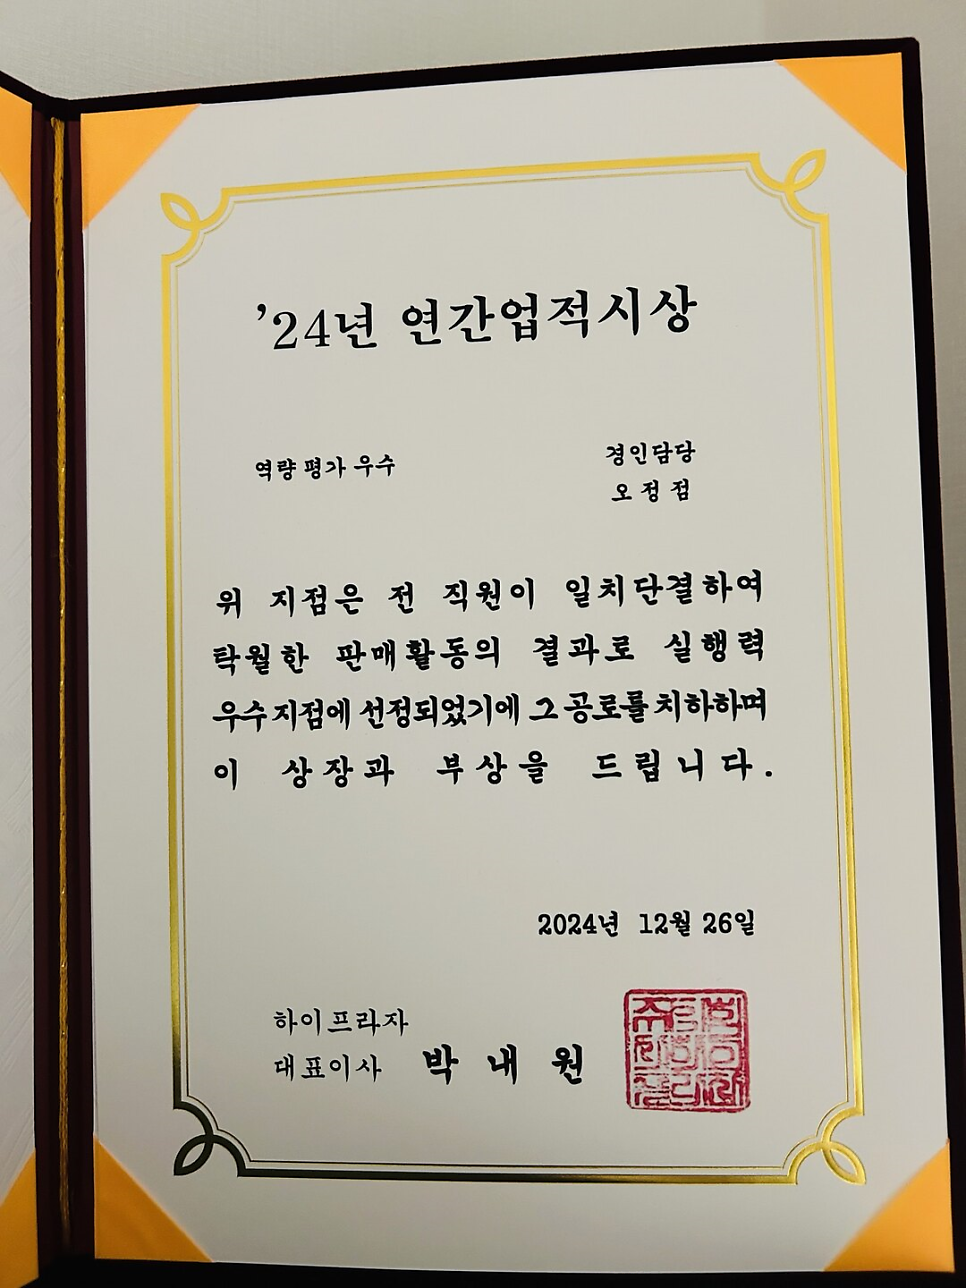 ’24년 연간업적시상
역량 평가 우수
경인담당
오정점
위 지점은 전 직원이 일치단결하여
탁월한 판매활동의 결과로 실행력
우수지점에 선정되었기에 그공로를 치하하며
이 상장과 부상을 드립니다.
2024년 12월 26일
하이프라자
대표이사 박내원